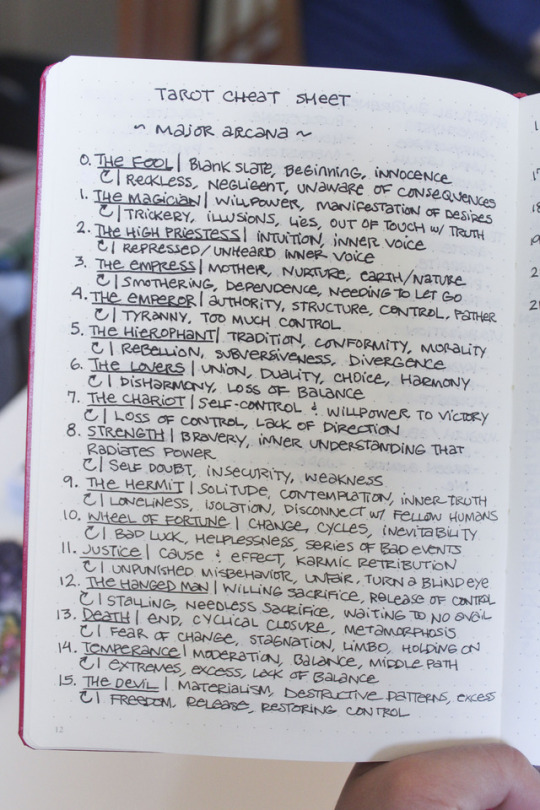 TAROT CHEAT SHEET
~ MAJOR ARCANA ~
0. THE FOOL | BLANK SLATE, BEGINNING, INNOCENCE
| RECKLESS, NEGLIGENT, UNAWARE OF CONSEQUENCES
1. THE MAGICIAN | WILLPOWER, MANIFESTATION OF DESIRES
| TRICKERY, ILLUSIONS, LIES, OUT OF TOUCH W/ TRUTH
2. THE HIGH PRIESTESS | INTUITION, INNER VOICE
| REPRESSED/UNHEARD INNER VOICE
3. THE EMPRESS | MOTHER, NURTURE, EARTH/NATURE
| SMOTHERING, DEPENDENCE, NEEDING TO LET GO
4. THE EMPEROR | AUTHORITY, STRUCTURE, CONTROL, FATHER
| TYRANNY, TOO MUCH CONTROL
5. THE HIEROPHANT | TRADITION, CONFORMITY, MORALITY
| REBELLION, SUBVERSIVENESS, DIVERGENCE
6. THE LOVERS | UNION, DUALITY, CHOICE, HARMONY
| DISHARMONY, LOSS OF BALANCE
7. THE CHARIOT | SELF-CONTROL & WILLPOWER TO VICTORY
| LOSS OF CONTROL, LACK OF DIRECTION
8. STRENGTH | BRAVERY, INNER UNDERSTANDING THAT
RADIATES POWER
| SELF DOUBT, INSECURITY, WEAKNESS
9. THE HERMIT | SOLITUDE, CONTEMPLATION, INNER TRUTH
| LONELINESS, ISOLATION, DISCONNECT W/ FELLOW HUMANS
10. WHEEL OF FORTUNE | CHANGE, CYCLES, INEVITABILITY
| BAD LUCK, HELPLESSNESS, SERIES OF BAD EVENTS
11. JUSTICE | CAUSE & EFFECT, KARMIC RETRIBUTION
| UNPUNISHED MISBEHAVIOR, UNFAIR, TURN A BLIND EYE
12. THE HANGED MAN | WILLING SACRIFICE, RELEASE OF CONTROL
| STALLING, NEEDLESS SACRIFICE, WAITING TO NO AVAIL
13. DEATH | END, CYCLICAL CLOSURE, METAMORPHOSIS
| FEAR OF CHANGE, STAGNATION, LIMBO, HOLDING ON
14. TEMPERANCE | MODERATION, BALANCE, MIDDLE PATH
| EXTREMES, EXCESS, LACK OF BALANCE
15. THE DEVIL | MATERIALISM, DESTRUCTIVE PATTERNS, EXCESS
| FREEDOM, RELEASE, RESTORING CONTROL
12